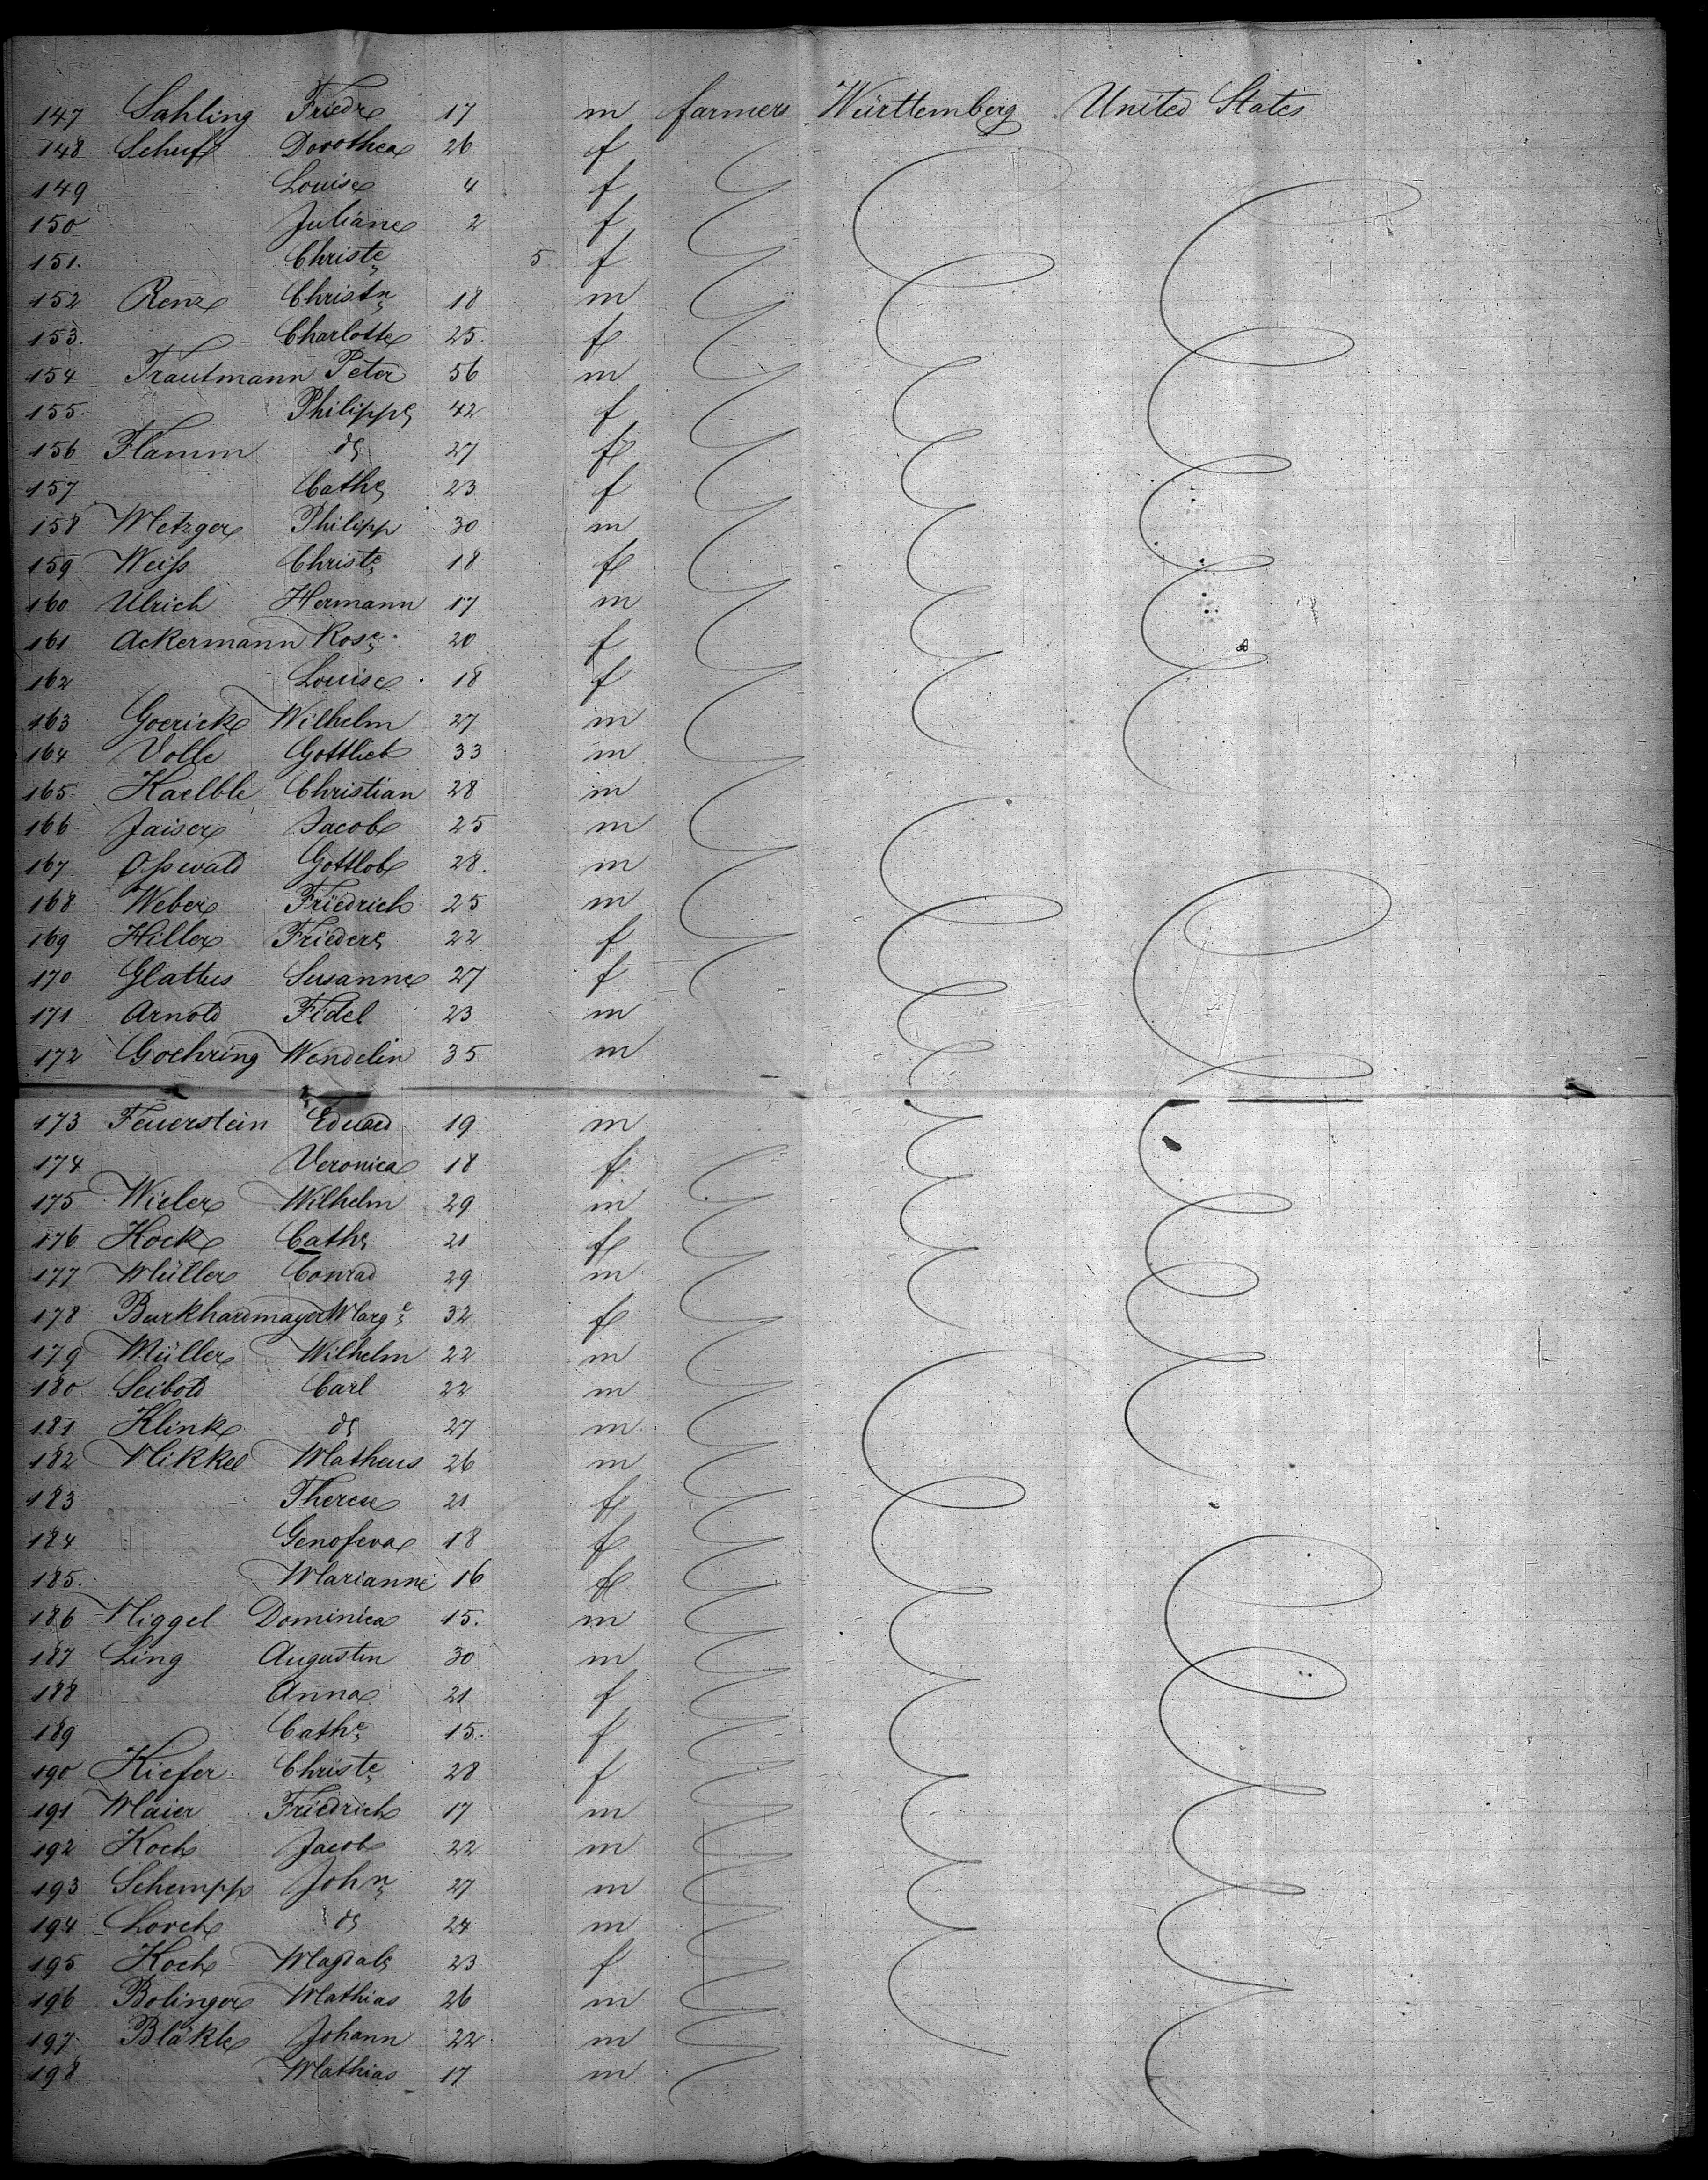 147 Sahling Friedr 17 m farmers Württemberg United States
148 Schief Dorothea 26 f
149 Louise 4 f
150 Juliane 2 f
151. Christe 5 f
152 Renz Christn 18 m
153. Charlotte 25. f
154 Trautmann Peter 56 m
155. Philippe 42 f
156 Flamm do 27 f
157 Cathe 23 f
158 Metzger Philipp 30 m
159 Weiſs Christe 18 f
160 Ulrich Hermann 17 m
161 Ackermann Rose 20 f
162 Louise 18 f
163 Goericke Wilhelm 27 m
164 Volle Gottlieb 33 m
165. Kaelble Christian 28 m
166 Jaiser Jacob 25 m
167 Oſswald Gottlob 28. m
168 Weber Friedrich 25 m
169 Hiller Friedere 22 f
170 Glattus Susanne 27 f
171 Arnold Fidel 23 m
172 Goehring Wendelin 35 m
173 Feuerstein Eduard 19 m
174 Veronica 18 f
175 Wieler Wilhelm 29 m
176 Kock Cathe 21 f
177 Müller Conrad 29 m
178 Burkhardmayer Marge 32 f
179 Müller Wilhelm 22 m
180 Seibold Carl 22 m
181 Klink do 27 m
182 Nikkel Matheus 26 m
183 Therese 21 f
184 Genofeva 18 f
185. Marianne 16 f
186 Niggel Dominica 15. m
187 Ling Augustin 30 m
188 Anna 21 f
189 Cathe 15. f
190 Kiefer Christe 28 f
191 Maier Friedrich 17 m
192 Koch Jacob 22 m
193 Schempp John 27 m
194 Lorch do 24 m
195 Koch Magdale 23 f
196 Bolinger Mathias 26 m
197 Bläkle Johann 22 m
198 Mathias 17 m